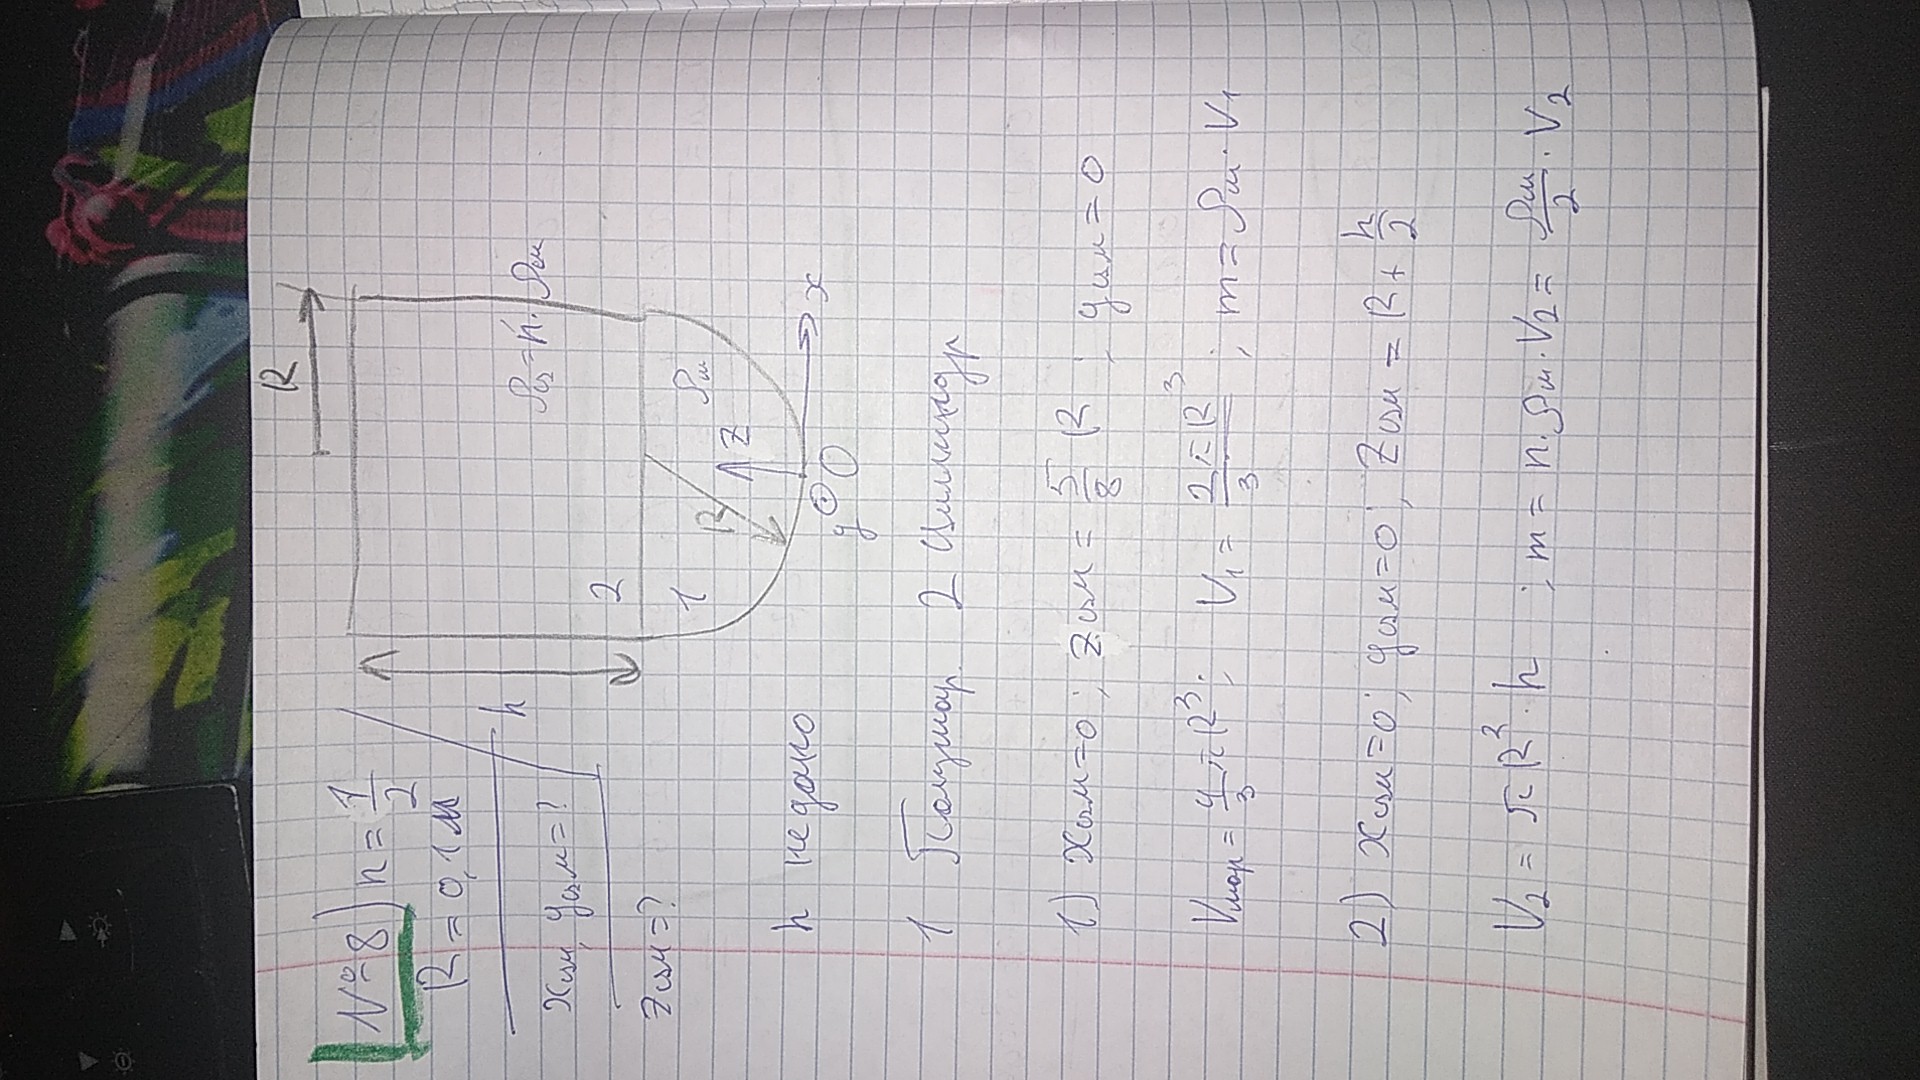 R
№8) n = 1/2
R = 0,1 м
h
xцм, yцм = ?
ρц = n · ρш
2
zцм = ?
1
ρш
R
z
h не дано
x
y O
1 Полушар. 2 Цилиндр
1) xцм = 0; zцм = 5/8 R ; yцм = 0
Vшар = 4/3 πR³; V₁ = 2πR³/3 ; m = ρш · V₁
2) xцм = 0; yцм = 0; zцм = R + h/2
V₂ = πR² · h ; m = n · ρш · V₂ = ρш/2 · V₂